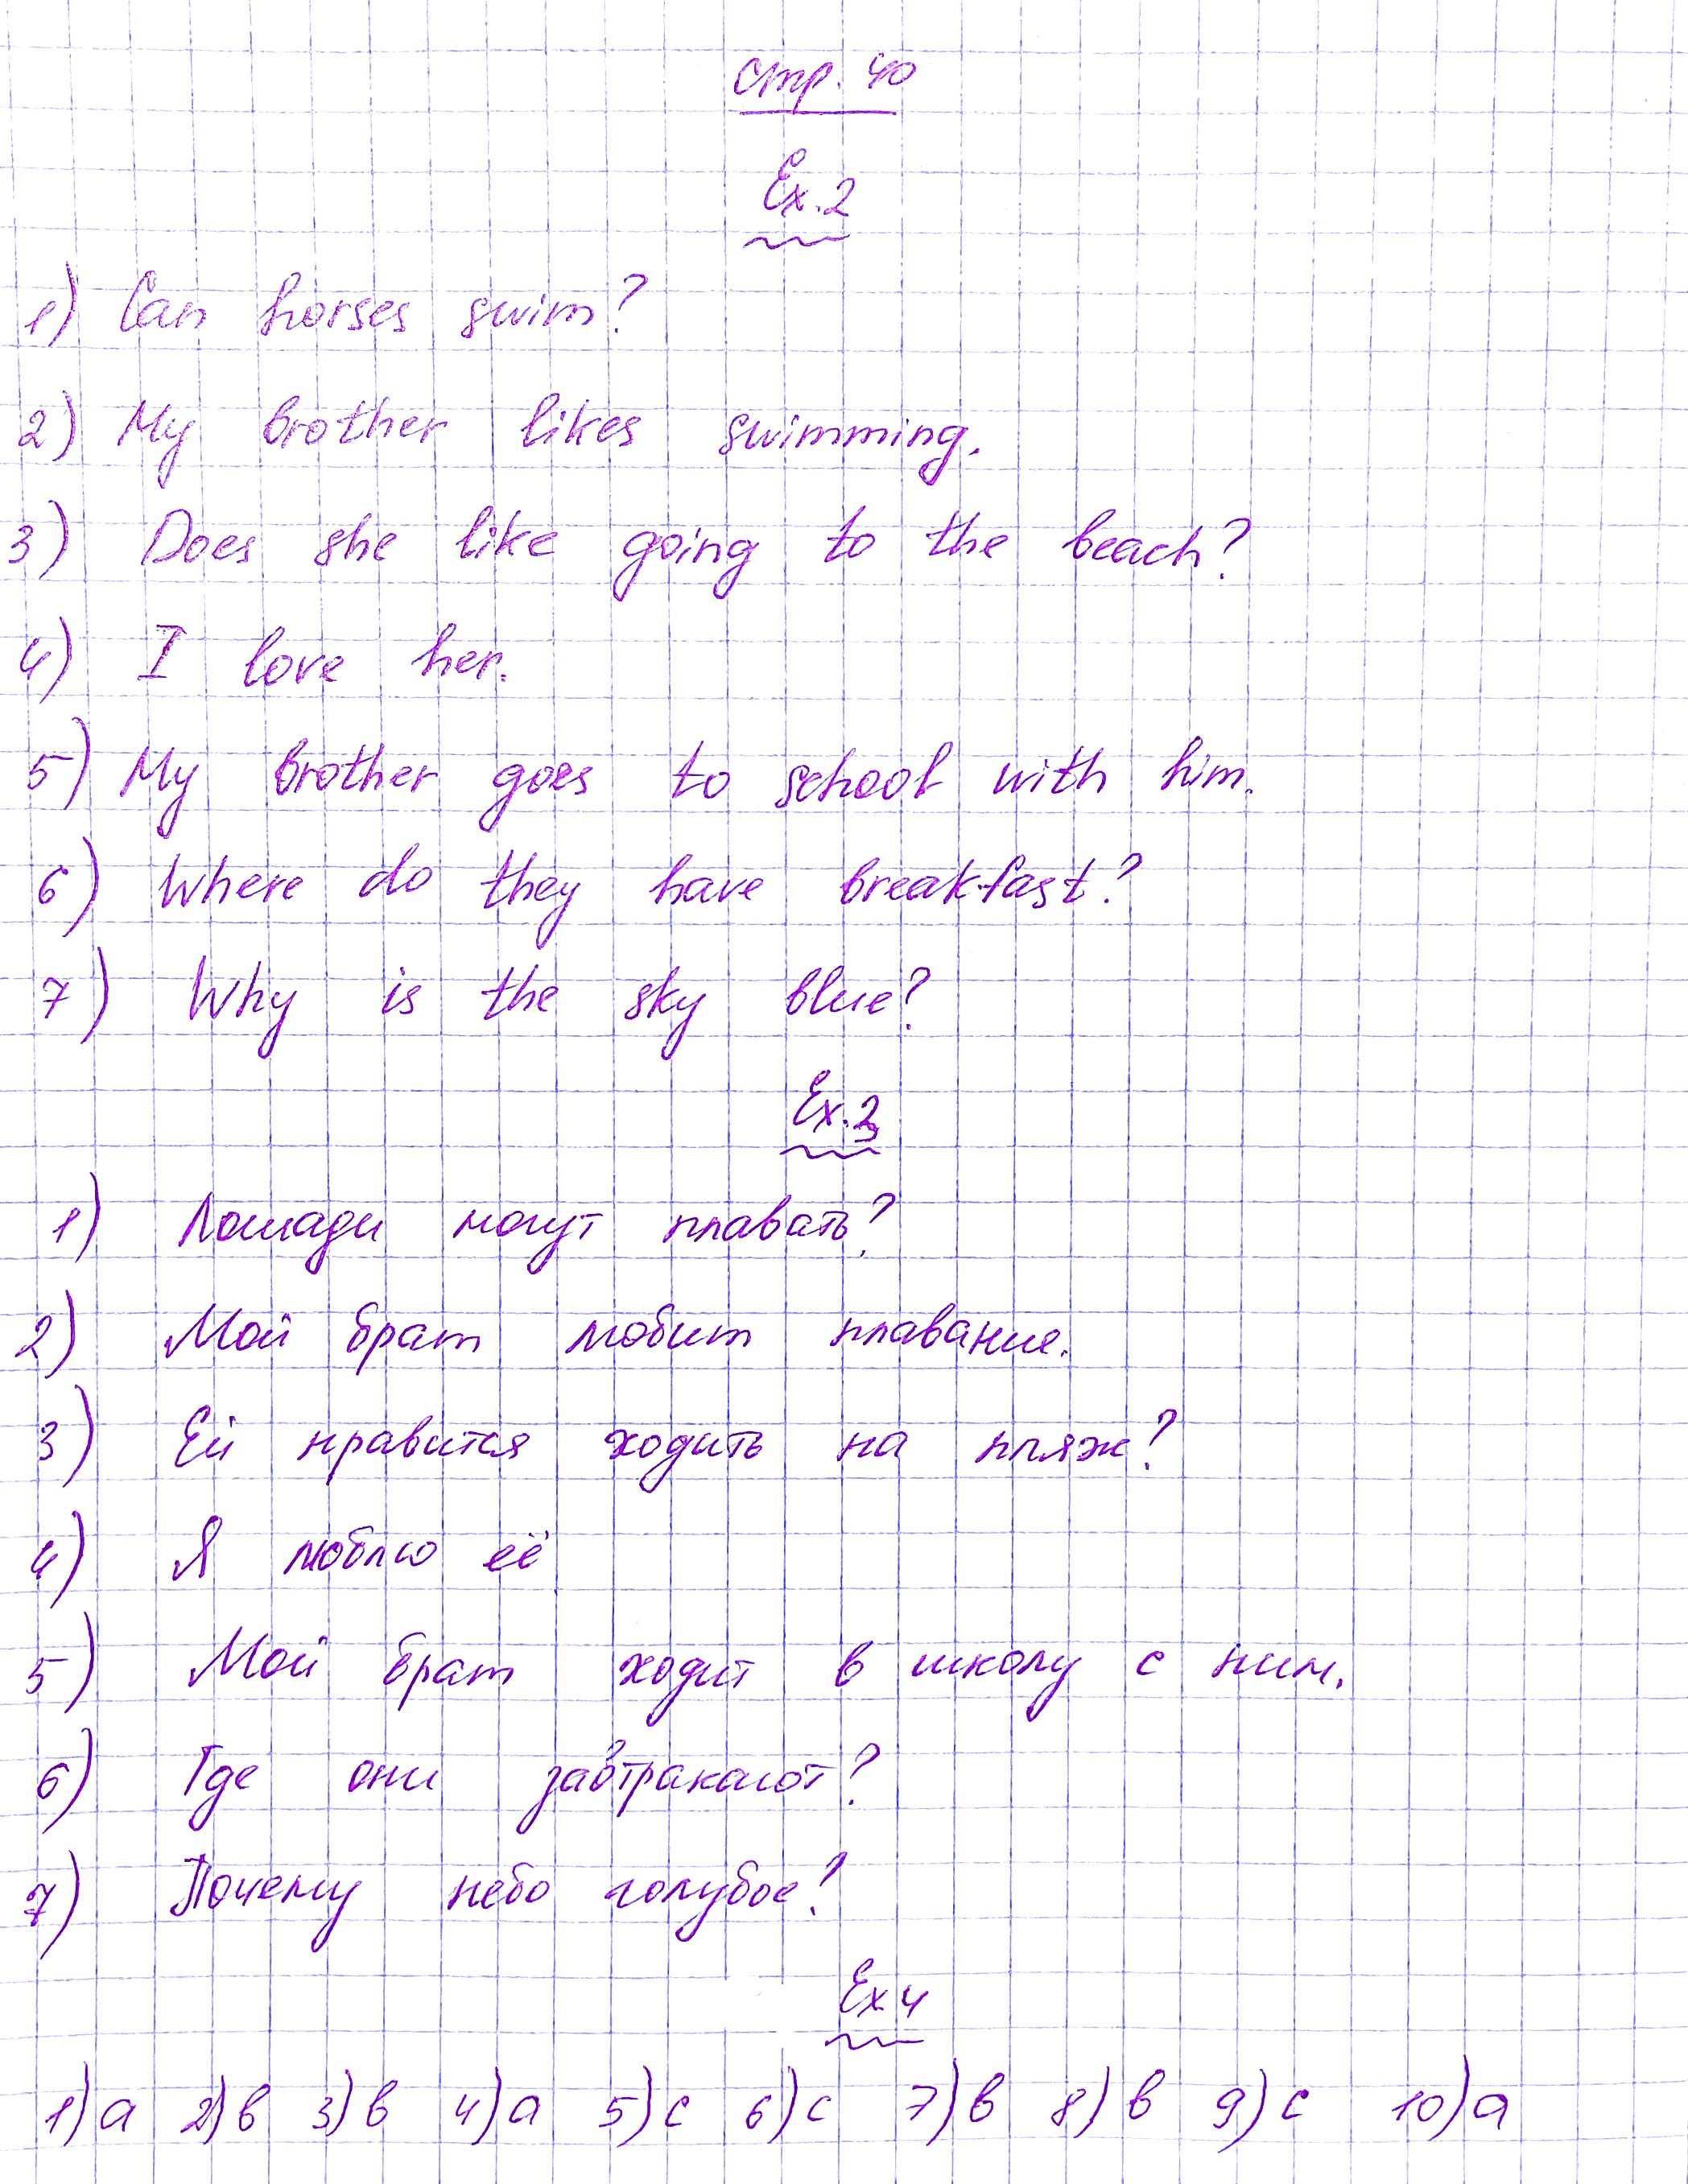 стр. 40
Ex. 2
1) Can horses swim?
2) My brother likes swimming.
3) Does she like going to the beach?
4) I love her.
5) My brother goes to school with him.
6) Where do they have breakfast?
7) Why is the sky blue?
Ex. 3
1) Лошади могут плавать?
2) Мой брат любит плавание.
3) Ей нравится ходить на пляж?
4) Я люблю её
5) Мой брат ходит в школу с ним.
6) Где они завтракают?
7) Почему небо голубое?
Ex 4
1) a 2) b 3) b 4) a 5) c 6) c 7) b 8) b 9) c 10) a